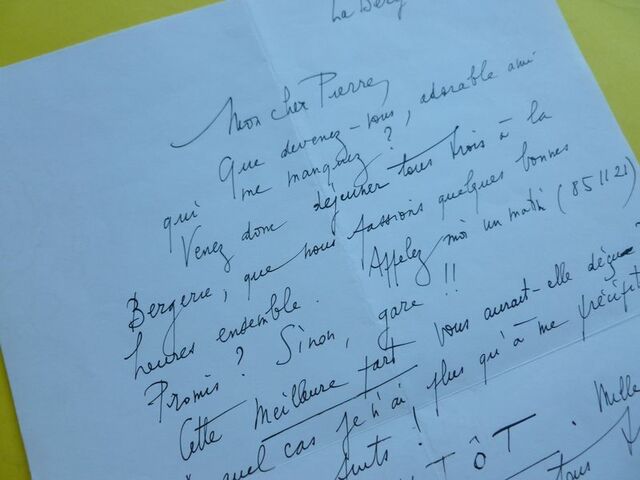 La Berg
Mon cher Pierre,
Que devenez-vous, adorable ami
qui me manquez ?
Venez donc déjeuner tous trois à la
Bergerie, que nous passions quelques bonnes
heures ensemble. Appelez moi un matin (851121)
Promis ? Sinon, gare !!
Cette Meilleure part vous aurait-elle déçu
quel cas je n'ai plus qu'à me précipit
! 
TÔT. Mille
tous